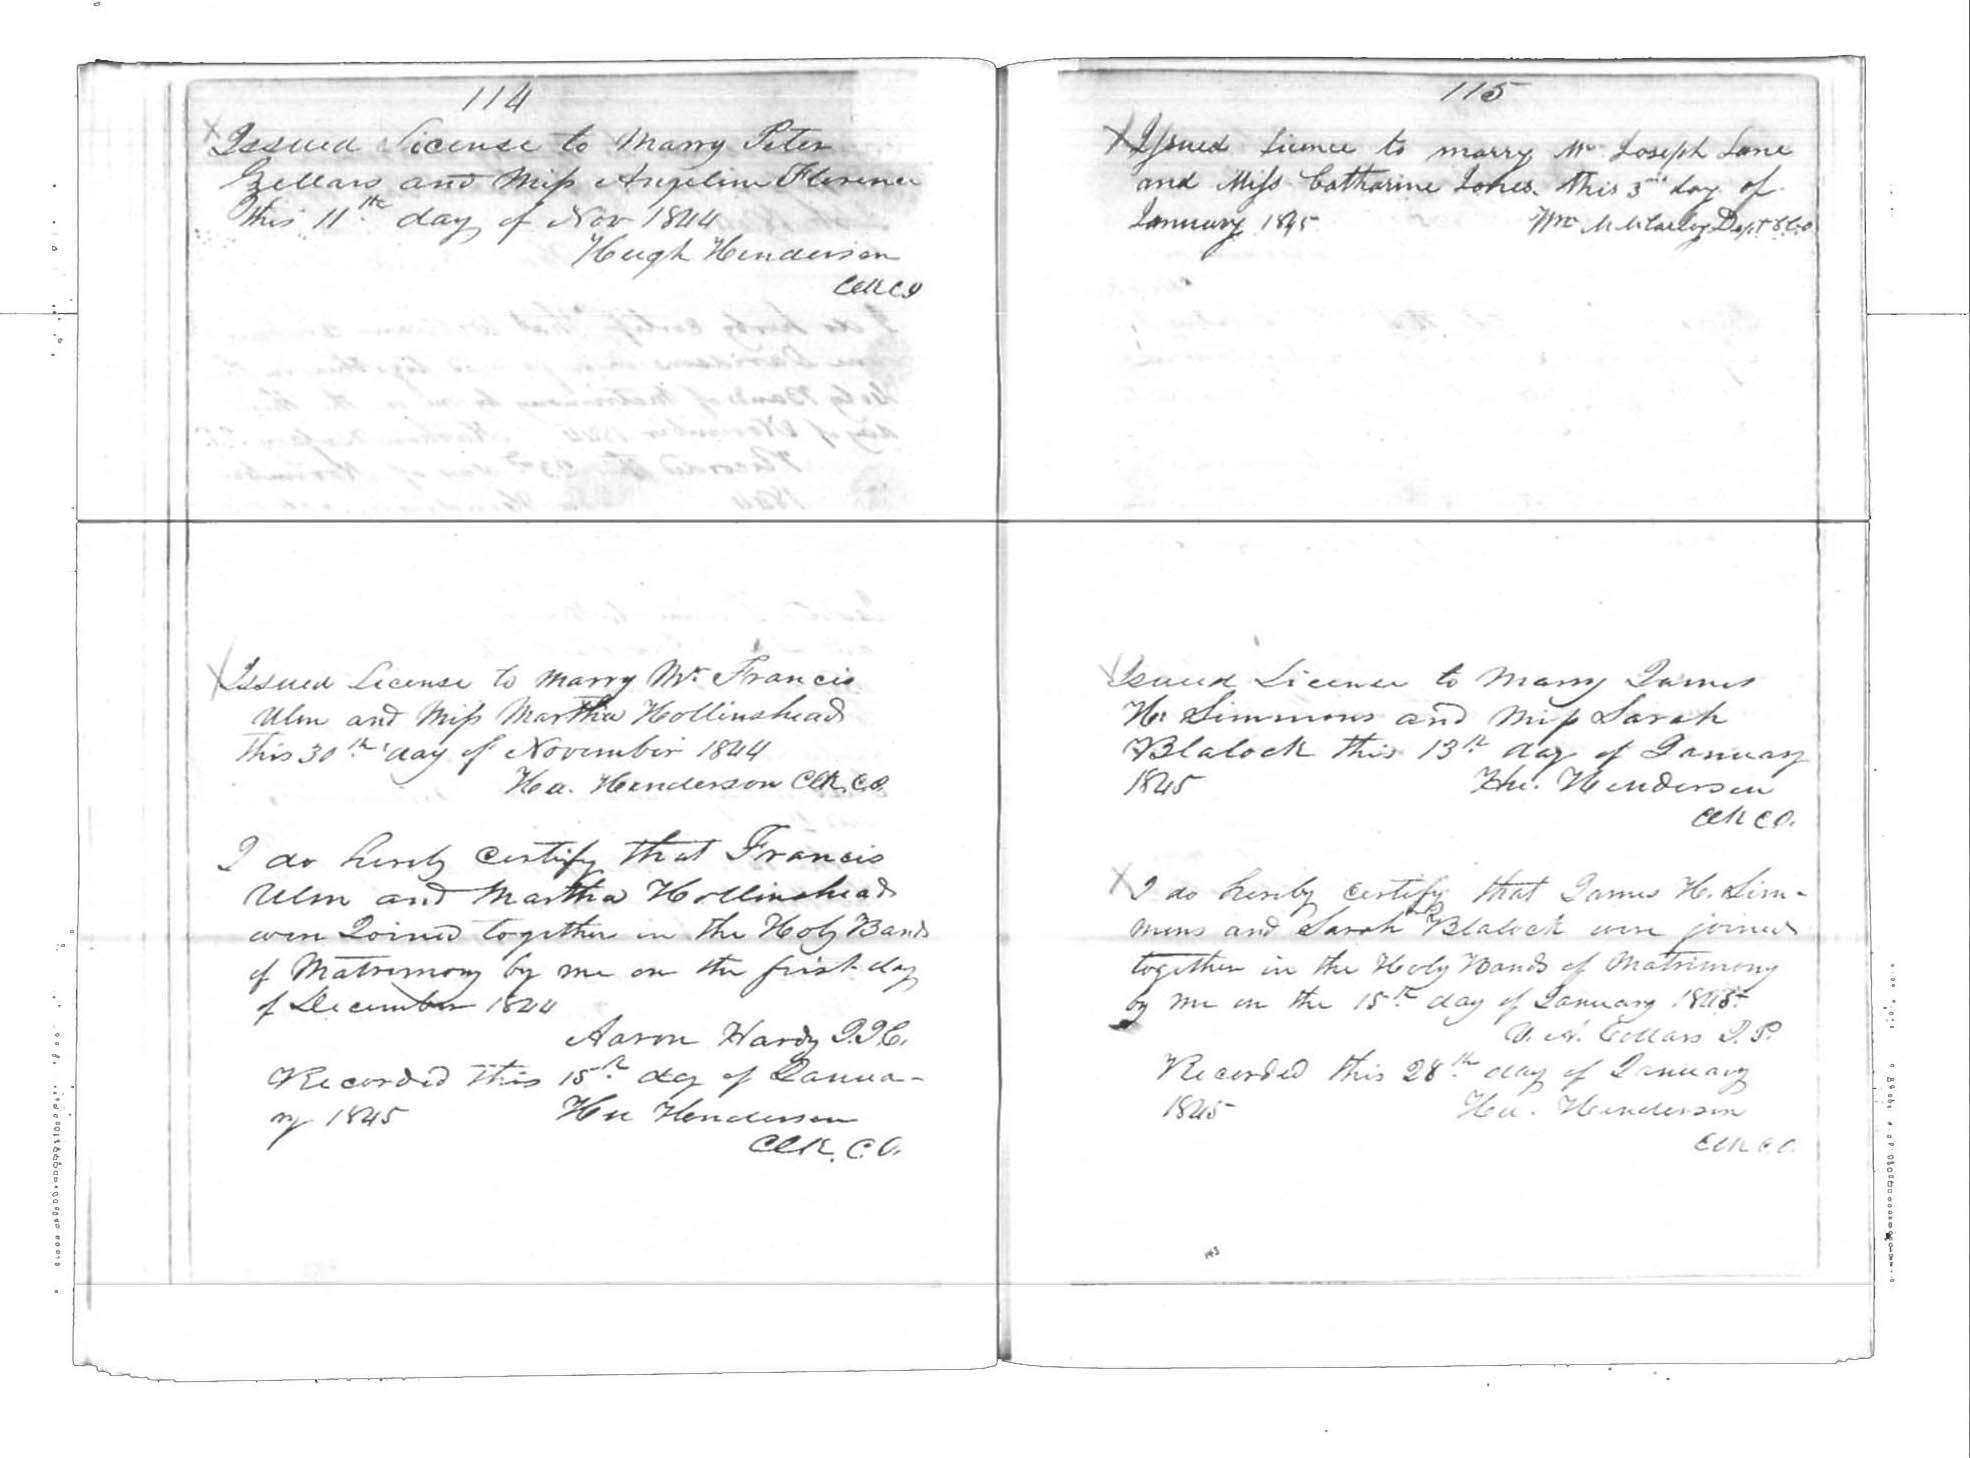 114
Issued License to Marry Peter
Zellars and Miss Angeline Florence
This 11th day of Nov 1844
Hugh Henderson
Clk CO
Issued License to Marry Mr Francis
Ulm and Miss Martha Hollinshead
this 30th day of November 1844
Hu. Henderson Clk. C.O.
I do hereby Certify that Francis
Ulm and Martha Hollinshead
were Joined together in the Holy Bands
of Matrimony by me on the first day
of December 1844
Aaron Hardy J.I.C.
Recorded this 15th day of Janua-
ry 1845 Hu Henderson
Clk. C.O.
115
Issued Licence to marry Mr Joseph Lane
and Miss Catharine Jones this 3rd day of
January 1845 Wm M Dept C.C.O
Issued License to Marry James
H. Simmons and Miss Sarah
Blalock this 13th day of January
1845 Hu. Henderson
Clk C O.
I do hereby certify that James H. Sim-
mons and Sarah Blalock were joined
together in the Holy Bands of Matrimony
by me on the 15th day of January 1845
Cellars J.P.
Recorded this 28th day of January
1845 Hu. Henderson
Clk C O.